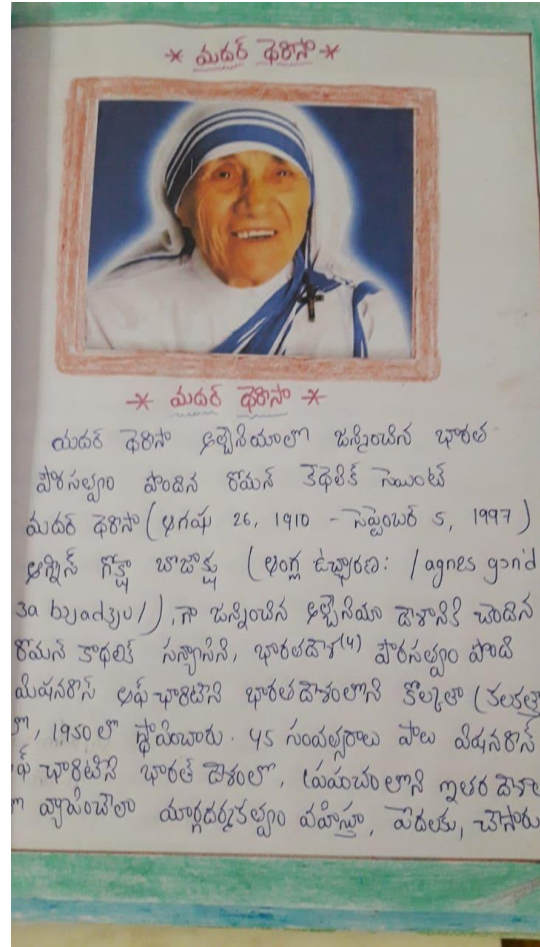 * మదర్ థెరిసా *
* మదర్ థెరిసా *
మదర్ థెరిసా అల్బేనియాలో జన్మించిన భారత
పౌరసత్వం పొందిన రోమన్ కేథలిక్ సెయింట్
మదర్ థెరిసా (ఆగషు 26, 1910 - సెప్టెంబర్ 5, 1997)
ఆగ్నీస్ గోక్షా బొజాక్షు (ఆంగ్ల ఉచ్ఛారణ: /agnes gɔnd
ʒa bɔjadʒu/), గా జన్మించిన అల్బేనియా దేశానికి చెందిన
రోమన్ కాథలిక్ సన్యాసిని, భారతదేశ(4) పౌరసత్వం పొంది
మిషనరీస్ ఆఫ్ ఛారిటీని భారతదేశంలోని కోల్కతా (కలకత్తా
లో, 1950 లో స్థాపించారు. 45 సంవత్సరాలు పాటు మిషనరీస్
ఫ్ ఛారిటీని భారత్ దేశంలో, ప్రపంచంలోని ఇతర దేశాల
లో వ్యాపించేలా మార్గదర్శకత్వం వహిస్తూ, పేదలకు, చేసారు